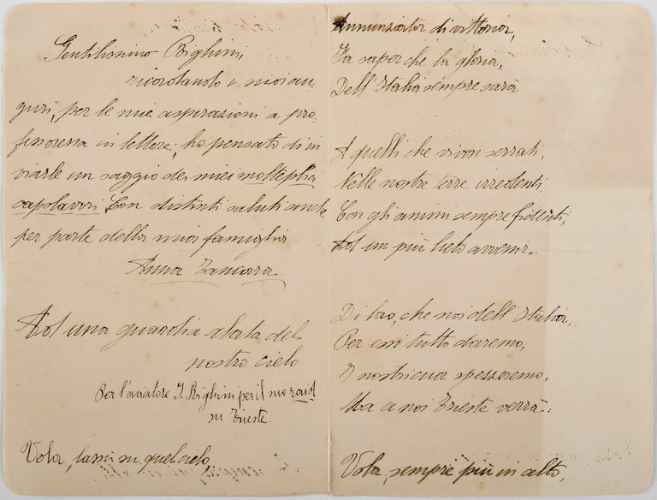 Gentilissimo Righini,
ricordando i suoi au
guri, per le mie aspirazioni a pro
fessoressa in lettere, ho pensato di in
viarle un saggio dei miei molteplici
capolavori. Con distinti saluti anche
per parte della mia famiglia
Anna
Ad una guardia alata del
nostro cielo
Per l'aviatore I. Righini per il suo raid
su Trieste
Vola, passi su quel cielo,
Annunziator di vittoria,
Fa saper che la gloria,
Dell'Italia sempre sarà
A quelli che vivon serrati,
Nelle nostre terre irredenti
Con gli animi sempre frementi,
Ad un più lieto avvenir.
Di loro, che noi dell'Italia,
Per essi tutto daremo,
I nostri cuor spezzeremo,
Ma a noi Trieste verrà..
Vola, sempre più in alto,